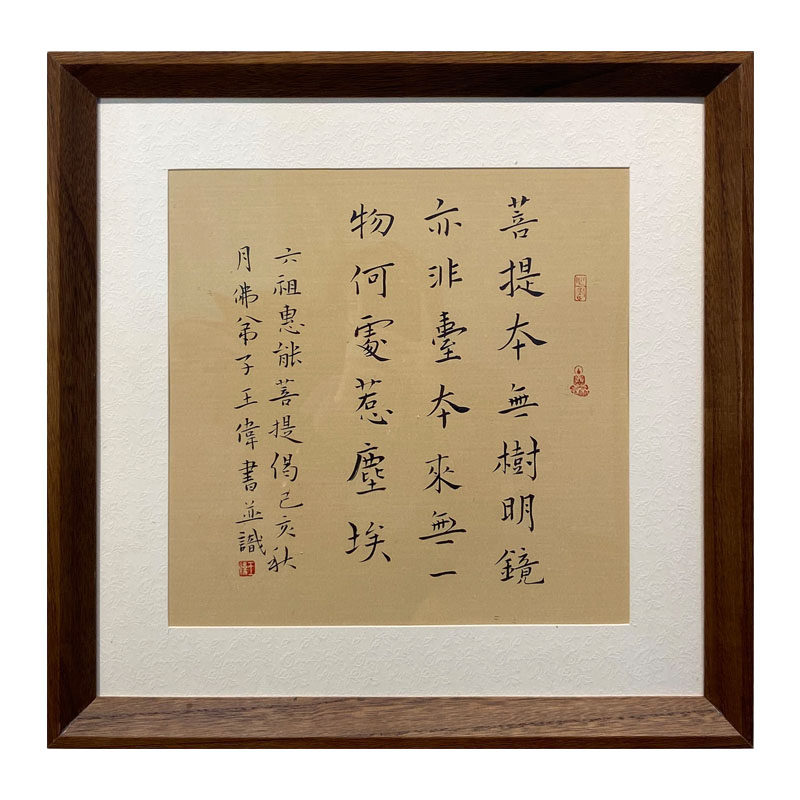 菩提本無樹明鏡
亦非臺本來無一
物何處惹塵埃
六祖惠能菩提偈己亥秋
月佛弟子王偉書並識